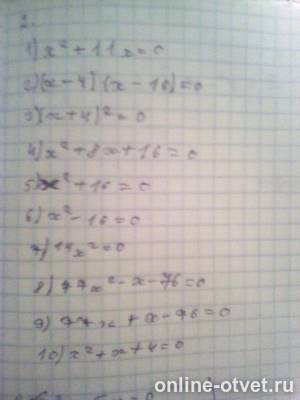 2.
1) x² + 11x = 0
2) (x - 4)(x - 16) = 0
3) (x + 4)² = 0
4) x² + 8x + 16 = 0
5) x² + 16 = 0
6) x² - 16 = 0
7) 14x² = 0
8) 77x² - x - 76 = 0
9) 77x + x - 76 = 0
10) x² + x + 4 = 0
online-otvet.ru